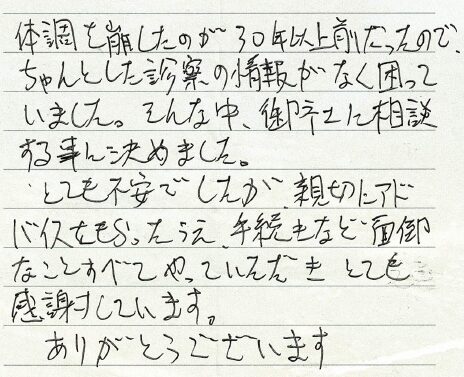 体調を崩したのが30年以上前だったので、
ちゃんとした診察の情報がなく困って
いました。そんな中、御社に相談
する事に決めました。
とても不安でしたが、親切にアド
バイスをもらったうえ、手続きなど面倒
なことすべてやっていただき とても
感謝しています。
ありがとうございます